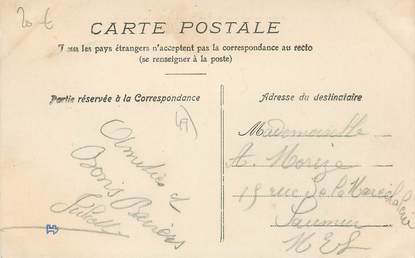 20 €
CARTE POSTALE
Tous les pays étrangers n'acceptent pas la correspondance au recto
(se renseigner à la poste)
Partie réservée à la Correspondance
Adresse du destinataire
Amitiés et
Bons Baisers
49
Mademoiselle
A. Morize
15 rue de la Maréchalerie
Saumur
M E L